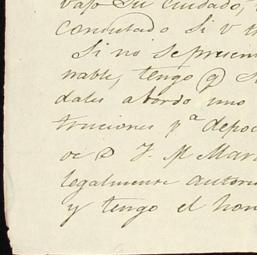 bajo su cuidado,
consultado si v
Si no se presen
nable, tengo q
dales abordo uno
truciones pª depo
de D J. M Mar
legalmente autori
y tengo el hon